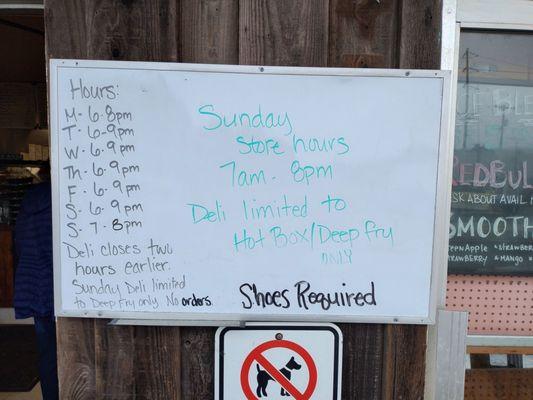 Hours:
M - 6-8pm
T - 6-9pm
W - 6-9pm
Th - 6-9pm
F - 6-9pm
S - 6-9pm
S - 7-8pm
Deli closes two
hours earlier.
Sunday Deli limited
to Deep Fry only. No orders.
Sunday
Store hours
7am - 8pm
Deli limited to
Hot Box/Deep fry
ONLY
Shoes Required
REDBUL
ASK ABOUT AVAIL
SMOOTH
Apple
STRAWB
MANGO